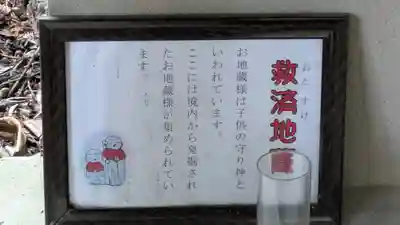 おたすけ
救済地蔵
お地蔵様は子供の守り神と
いわれています。
ここには境内から発掘され
たお地蔵様が集められてい
ます。